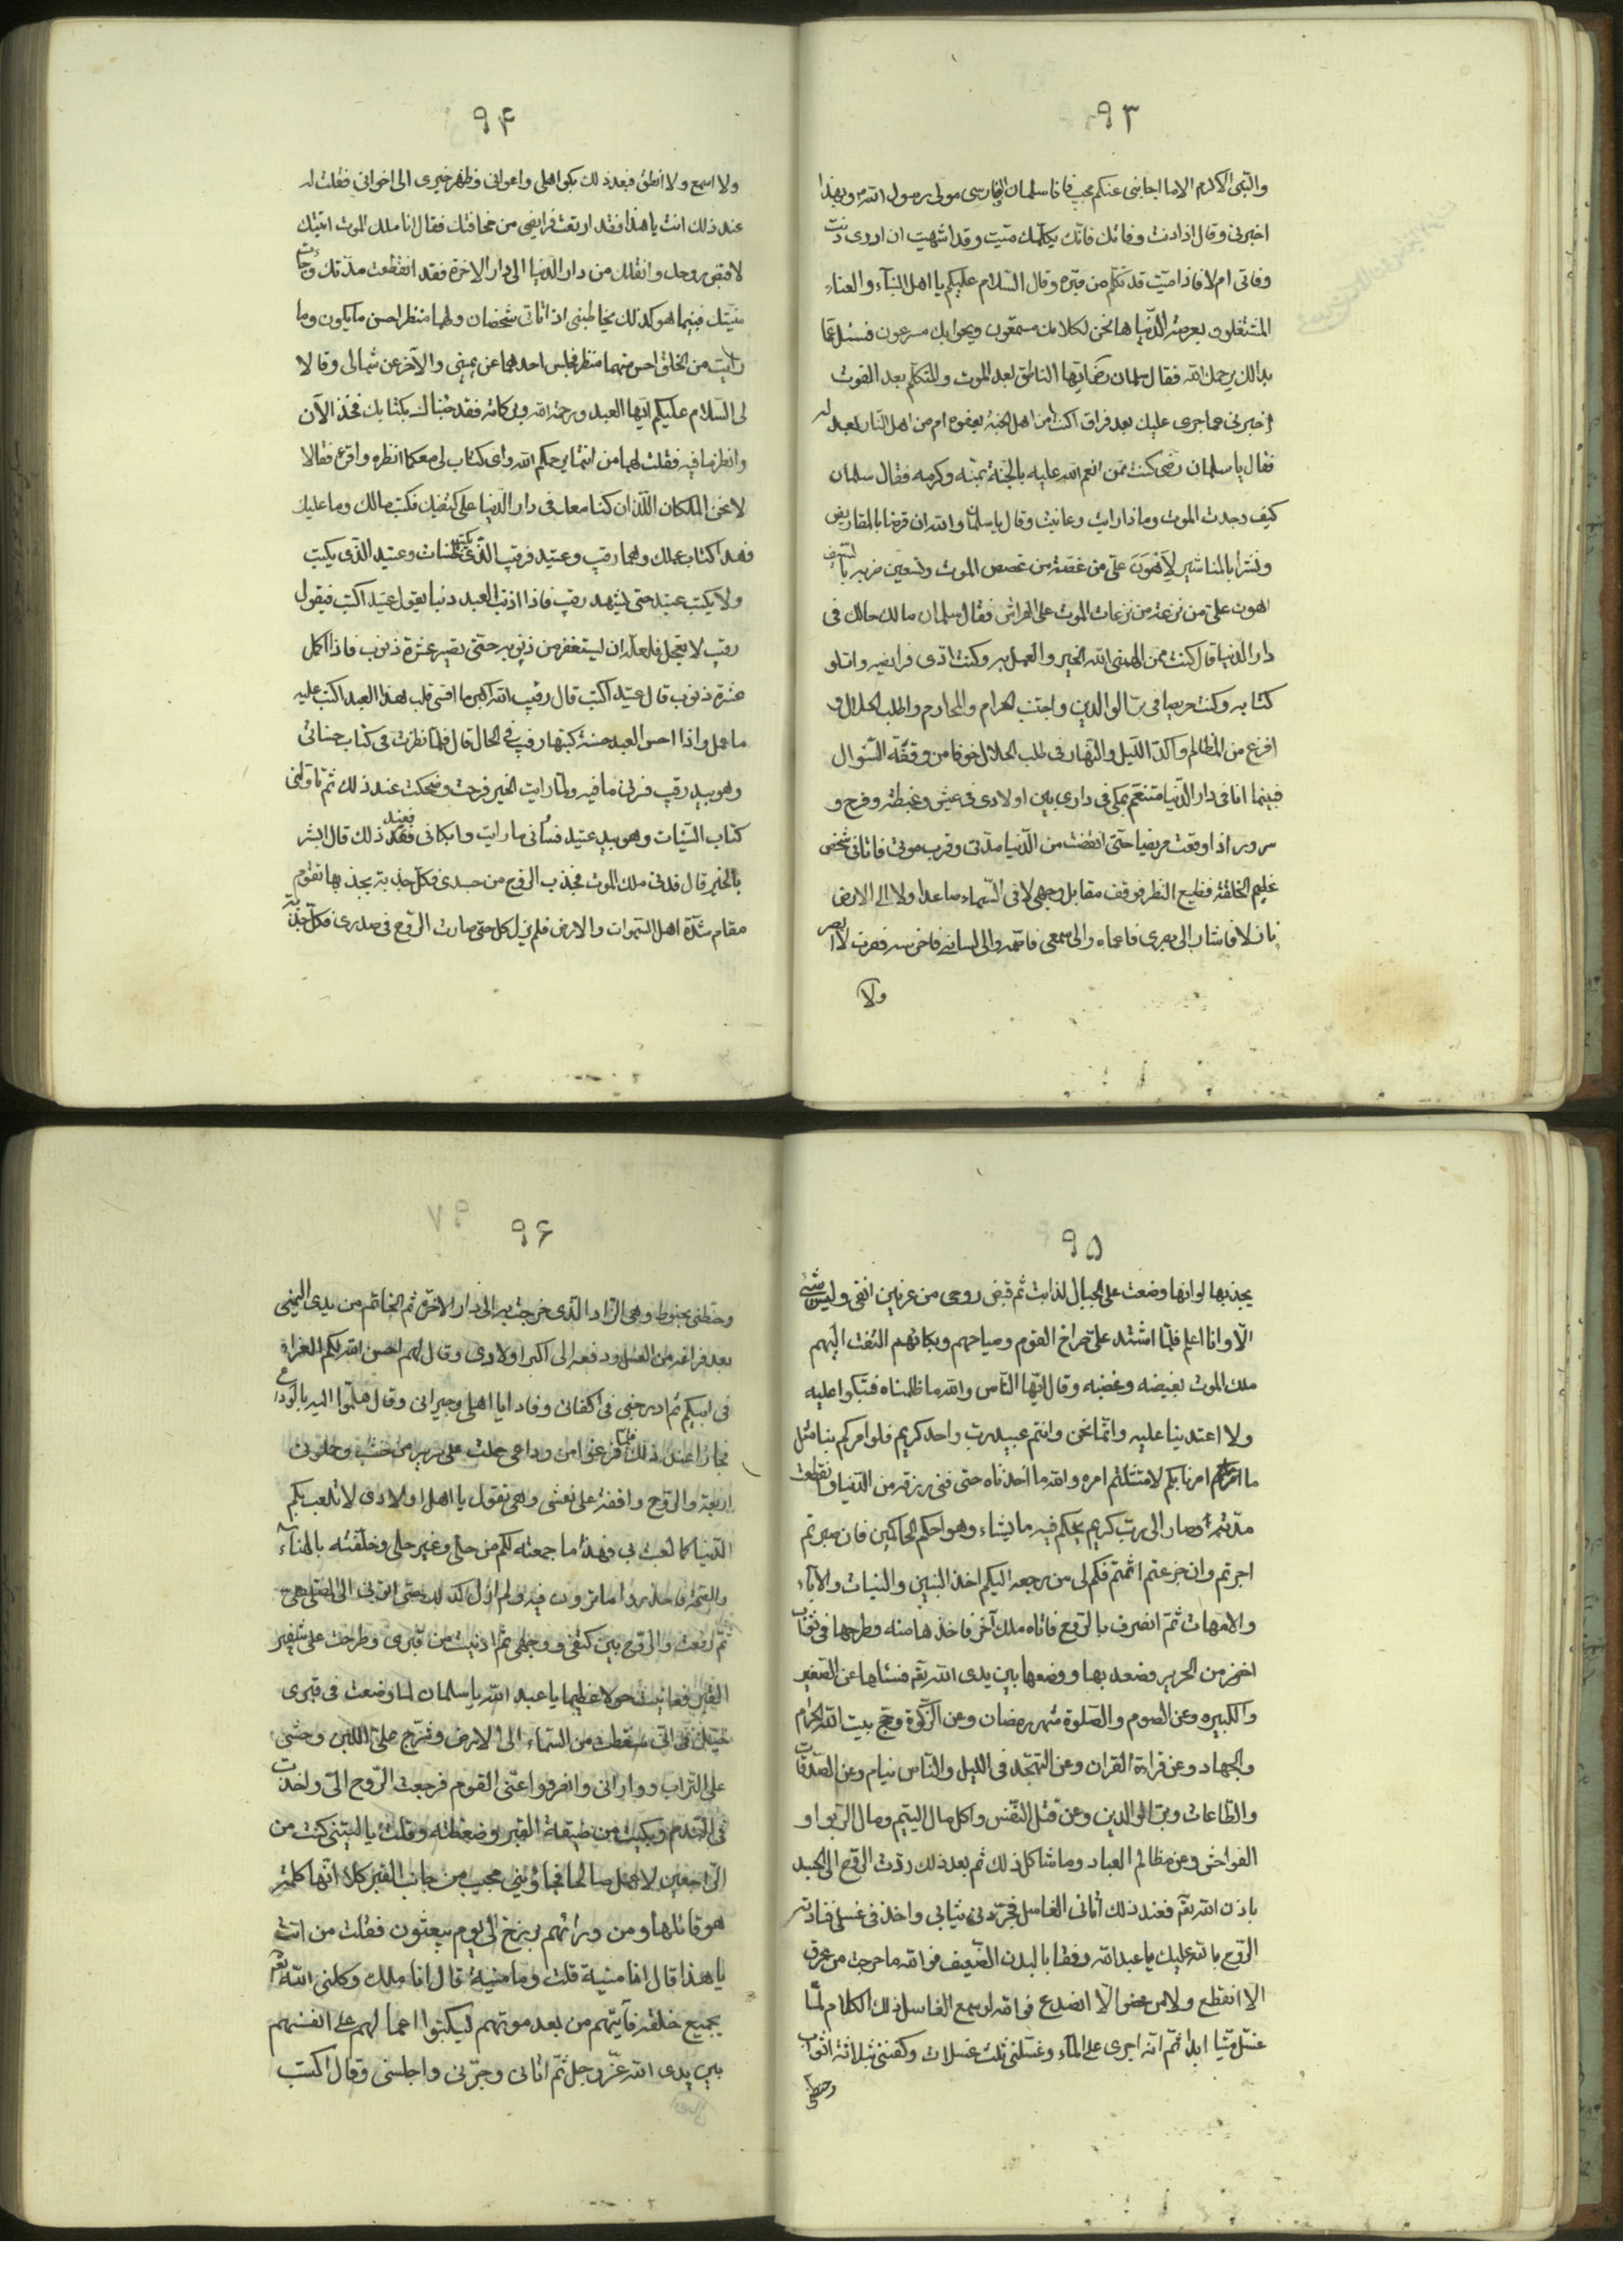 ٩٣
والنبى الاكرم الا ما اجابنى عنكم مجيب فانا سلمان الفارسى مولى رسول الله ص وبهذا
اخبرنى وقال اذا دنت وفاتك فانك يكلمك ميت وقد اشتهيت ان ادرى دنت
وفاتى ام لا فاذا ميت قد تكلم من قبره وقال السلام عليكم يا اهل البناء والعناء
المشتغلون بعرصة الدنيا ها نحن لكلامك مستمعون وبجوابك مسرعون فسئل عما
بدالك يرحمك الله فقال سلمان رض ايها الناطق بعد الموت والمتكلم بعد الفوت
اخبرنى عما جرى عليك بعد فراق اكنت من اهل الجنة بعفوه ام من اهل النار بعدله
فقال يا سلمان رض كنت ممن انعم الله عليه بالجنة بمنه وكرمه فقال سلمان
كيف وجدت الموت وماذا رايت وعاينت وقال يا سلمان والله ان قرضا بالمقاريض
ونشرا بالمناشير لاهون على من غصة من غصص الموت وتسعين ضربة بالسيف
اهون على من نزعة من نزعات الموت على الفراش فقال سلمان ما لك حالك فى
دار الدنيا قال كنت ممن الهمنى الله الخير والعمل به وكنت اؤدى فرايضه واتلو
كتابه وكنت حريصا فى بر الوالدين واجتنب الحرام والمحارم واطلب الحلال و
افزع من المظالم واكد الليل والنهار فى طلب الحلال خوفا من وقفة السؤال
فبينما انا فى دار الدنيا متنعم بملكى فى دارى بين اولادى فى عيش وغبطة وفرح و
سرور اذا وقعت مريضا حتى انقضت من الدنيا مدتى وقرب موتى فاتانى شخص
عظيم الخلقة فظيع النظر فوقف مقابل وجهى لا فى السماء صاعدا ولا الى الارض
نازلا فاشار الى بصرى فاعماه والى سمعى فاصمه والى لسانى فاخرسه فصرت لا ابصر
ولا
٩۴
ولا اسمع ولا انطق فبعد ذلك بكوا اهلى واعوانى وظهر خبرى الى اخوانى فقلت له
عند ذلك انت يا هذا فقد ارتعت فرايصى من مخافتك فقال انا ملك الموت اتيتك
لاقبض روحك وانقلك من دار الدنيا الى دار الاخرة فقد انقطعت مدتك وجائت
منيتك فبينما هو كذلك يخاطبنى اذ اتانى شخصان ولهما منظر احسن ما يكون وما
رايت من الخلق احسن منهما منظرا فجلس احدهما عن يمينى والآخر عن شمالى وقالا
لى السلام عليكم ايها العبد ورحمة الله وبركاته فقد جئناك بكتابك فخذ الآن
وانظر ما فيه فقلت لهما من انتما يرحمكم الله واى كتاب لى معكما انظره واقرء فقالا
لا نحن الملكان اللذان كنا معك فى دار الدنيا على كتفيك فكتب ما لك وما عليك
فهذا كتاب عملك وهما رقيب وعتيد فرقيب الذى يكتب الحسنات وعتيد الذى يكتب
ولا يكتب عتيد حتى يشهد رقيب فاذا اذنب العبد ذنبا يقول عتيد اكتب فيقول
رقيب لا تعجل فلعله ان يستغفر من ذنوبه حتى تصير عشرة ذنوب فاذا اكمل
عشرة ذنوب قال عتيد اكتب قال رقيب الله اكبر ما اقسى قلب هذا العبد اكتب عليه
ما عمل واذا احسن العبد حسنة كتبها رقيب فى الحال قال فلما نظرت فى كتاب حسناتى
وهو بيد رقيب فسرنى ما فيه ولما رايت الخير فرحت وضحكت عند ذلك ثم ناولنى
كتاب السيئات وهو بيد عتيد فسائنى ما رايت وابكانى فعند ذلك قال ابشر
بالخير قال فدنى ملك الموت فجذب الروح من جسدى فكل جذبة يجذبها تقوم
مقام شدة اهل السموات والارض فلم يزل كل حتى صارت الروح فى صدرى فكل جذبة
٩٥
يجذبها لو انها وضعت على الجبال لذابت ثم قبض روحى من عرنين انفى وليس شئ
الا وانا اعلم فلما اشتد على صراخ القوم وصياحهم وبكائهم التفت اليهم
ملك الموت بغيضه وغضبه وقال ايها الناس والله ما ظلمناه فتبكوا عليه
ولا اعتدينا عليه وانما نحن وانتم عبيد رب واحد كريم فلو امركم بنا مثل
ما امرنا بكم لامتثلتم امره والله ما اخذناه حتى فنى رزقه من الدنيا وانقطعت
مدته وصار الى رب كريم يحكم فيه ما يشاء وهو احكم الحاكمين فان صبرتم
اجرتم وان جزعتم اثمتم فكم لى من رجعة اليكم اخذ البنين والبنات والآباء
والامهات ثم انصرف بالروح فاتاه ملك آخر فاخذها منه وطرحها فى ثياب
اخضر من الحرير وصعد بها ووضعها بين يدى الله تقم فسئلها عن الصغير
والكبيره وعن الصوم والصلوة شهر رمضان وعن الزكوة وحج بيت الله الحرام
والجهاد وعن قراءة القران وعن التهجد فى الليل والناس نيام وعن الصدقات
والطاعات وبر الوالدين وعن قتل النفس واكل مال اليتيم ومال الربوا و
الفواحش وعن مظالم العباد وما شاكل ذلك ثم بعد ذلك ردت الروح الى الجسد
باذن الله تقم فعند ذلك اتانى الغاسل فجردنى ثيابى واخذ فى غسلى فنادته
الروح بالله عليك يا عبد الله رفقا بالبدن الضعيف فو الله ما خرجت من عرق
الا انقطع ولا من عضو الا انصدع فو الله لو سمع الغاسل ذلك الكلام لما
غسل ميتا ابدا ثم انه اجرى على الماء وغسلنى ثلث غسلات وكفننى بثلاثة اثواب
وحنطنى
٩۶
وحنطنى بحنوط وهى الزاد الذى خرجت به الى دار الاخرة ثم الخاتم من يدى اليمنى
بعد فراغه من الغسل ودفعه الى اكبر اولادى وقال لهم احسن الله لكم العزاء
فى ابيكم ثم ادرجنى فى اكفانى ونادا يا اهلى وجيرانى وقال هلموا اليه بالوداع
فجاؤا عند ذلك فلما فرغوا من وداعى حملت على سرير من خشب وحلونى
اربعة والروح واقفة على نعشى وهى تقول يا اهل اولادى لا تلعب بكم
الدنيا كما لعبت بى فهذا ما جمعته لكم من حلى وغير حلى وخلفته بالهناء
والصحة فاحذروا ما ترون فيه ولم ازل كذلك حتى اتوا بى الى المصلى
ثم رفعت والروح بين كتفى ووجهى ثم ادنيت من قبرى وطرحت على شفير
القبر فعاينت هولا عظيما يا عبد الله يا سلمان لما وضعت فى قبرى
خيل لى انى سقطت من السماء الى الارض وشرج على اللبن وحثى
على التراب ووارانى وانصرفوا عنى القوم فرجعت الروح الى واخذت
فى الندم وبكيت من ضيقة القبر وضغطته وقلت يا ليتنى كنت من
الراجعين لاعمل صالحا فجاوبنى مجيب من جانب القبر كلا انها كلمة
هو قائلها ومن ورائهم برزخ الى يوم يبعثون فقلت من انت
يا هذا قال انا منبه قلت وما منبه قال انا ملك وكلنى الله تقم
بجميع خلقه فانبئهم من بعد موتهم ليكتبوا اعمالهم على انفسهم
بين يدى الله عز وجل ثم اتانى وجرنى واجلسنى وقال اكتب